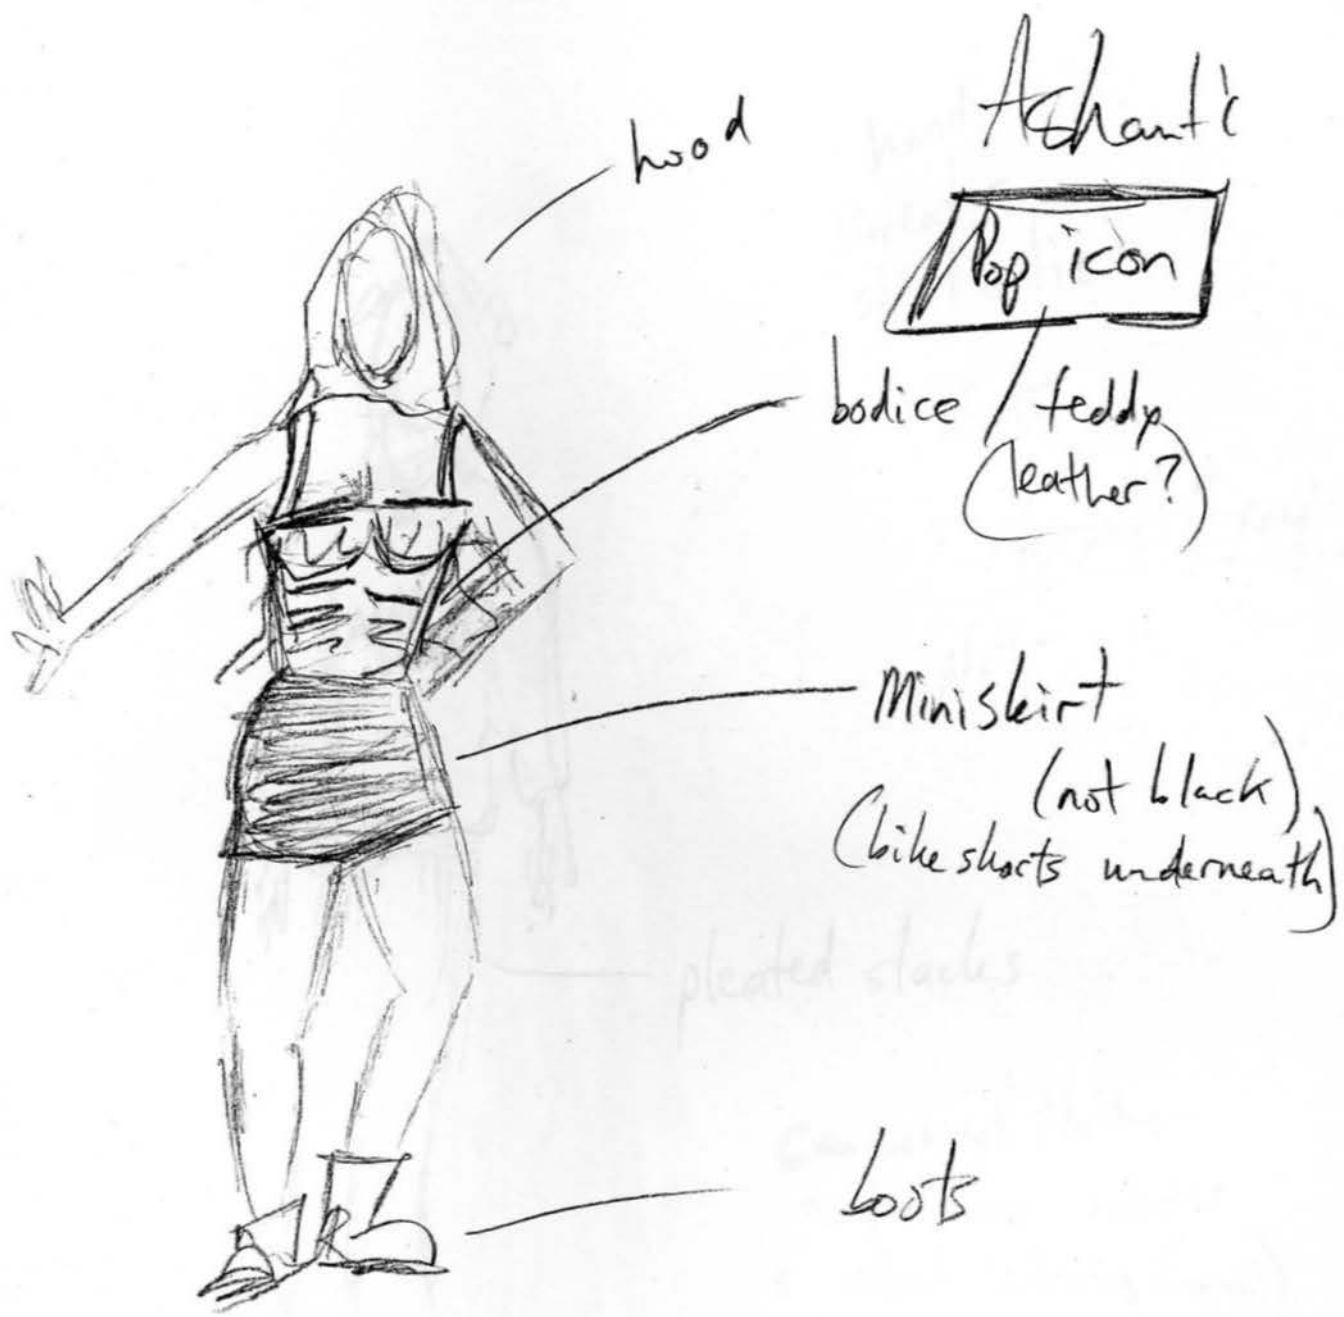 Ashanti
Pop icon
hood
bodice / teddy
(leather?)
miniskirt
(not black)
(bike shorts underneath)
pleated slacks
boots